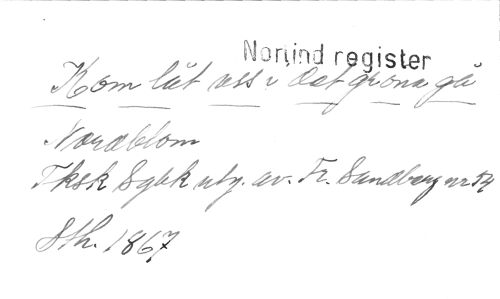 Norlind register
Kom låt oss i det gröna gå
Nordblom
Fksk Sgbk utg. av. Fr. Sandberg nr 54
Sth. 1867